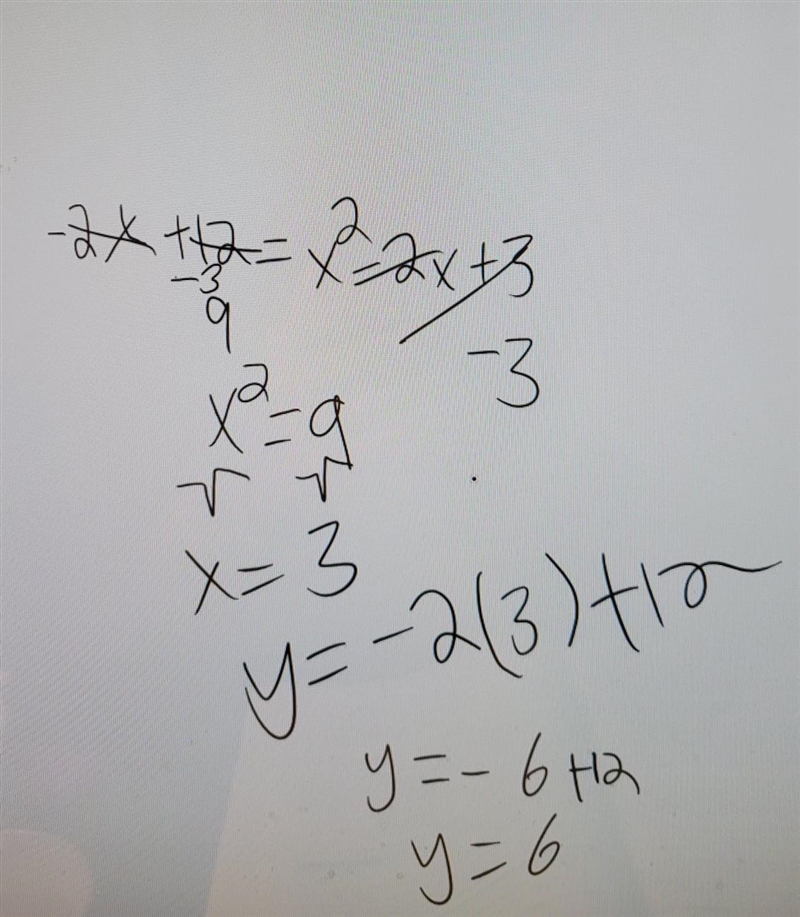 -2x +12 = x² = 2x + 3
-3
9
-3
x² = 9
√ √
x = 3
y = -2(3) + 12
y = - 6 + 12
y = 6